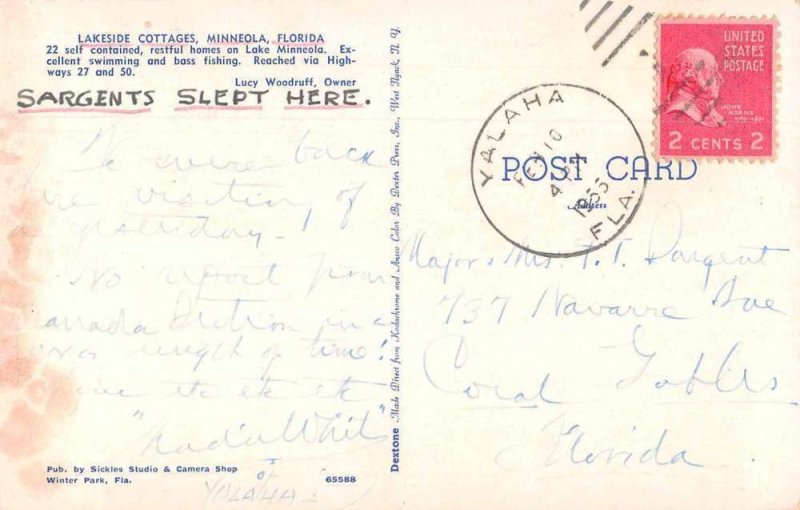 LAKESIDE COTTAGES, MINNEOLA, FLORIDA
22 self contained, restful homes on Lake Minneola. Ex-
cellent swimming and bass fishing. Reached via High-
ways 27 and 50.
Lucy Woodruff, Owner
SARGENTS SLEPT HERE.
We were back
here visiting
yesterday -
No report from
Canada in a
length of time!
Love etc etc etc
of
YALAHA -
Pub. by Sickles Studio & Camera Shop
Winter Park, Fla.
65588
Dextone Made Direct from Kodachrome and Ansco Color By Dexter Press, Inc., West Nyack, N. Y.
YALAHA
FEB 10
4 PM
1955
FLA.
UNITED
STATES
POSTAGE
JOHN
ADAMS
2 CENTS 2
POST CARD
Address
Major & Mrs. F. T. Sargent
737 Navarre Ave
Coral Gables
Florida